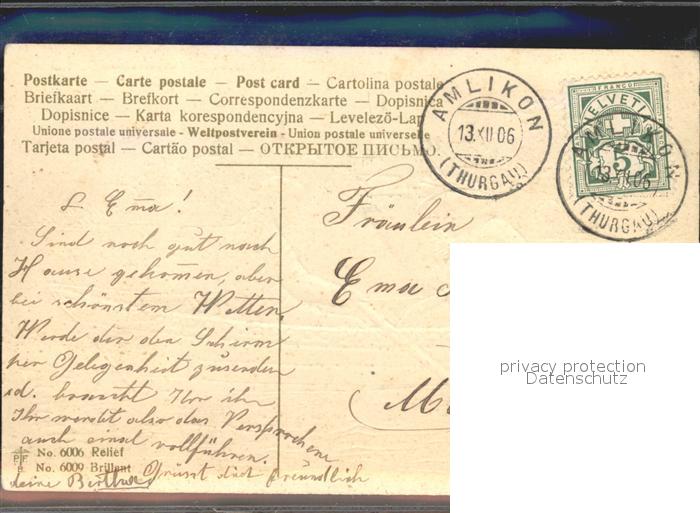 Postkarte — Carte postale — Post card — Cartolina postale
Briefkaart — Brefkort — Correspondenzkarte — Dopisnica
Dopisnice — Karta korespondencyjna — Levelező-Lap
Unione postale universale - Weltpostverein - Union postale universelle
Tarjeta postal — Cartão postal — ОТКРЫТОЕ ПИСЬМО.
AMLIKON
13.XII 06
(THURGAU)
FRANCO
HELVETIA
5
AMLIKON
13.XII 06
(THURGAU)
L. Em̄a!
Sind noch gut nach
Hause gekom̄en, aber
bei schönstem Wetter.
Werde dir den Schirm
per Gelegenheit zusenden
od. braucht Ihr ihn
Ihr werdet also das Versprochene
auch einst vollführen.
Grüsst dich freundlich
deine Bertha
Fräulein
Em̄a
No. 6006 Relief
No. 6009 Brillant
privacy protection
Datenschutz